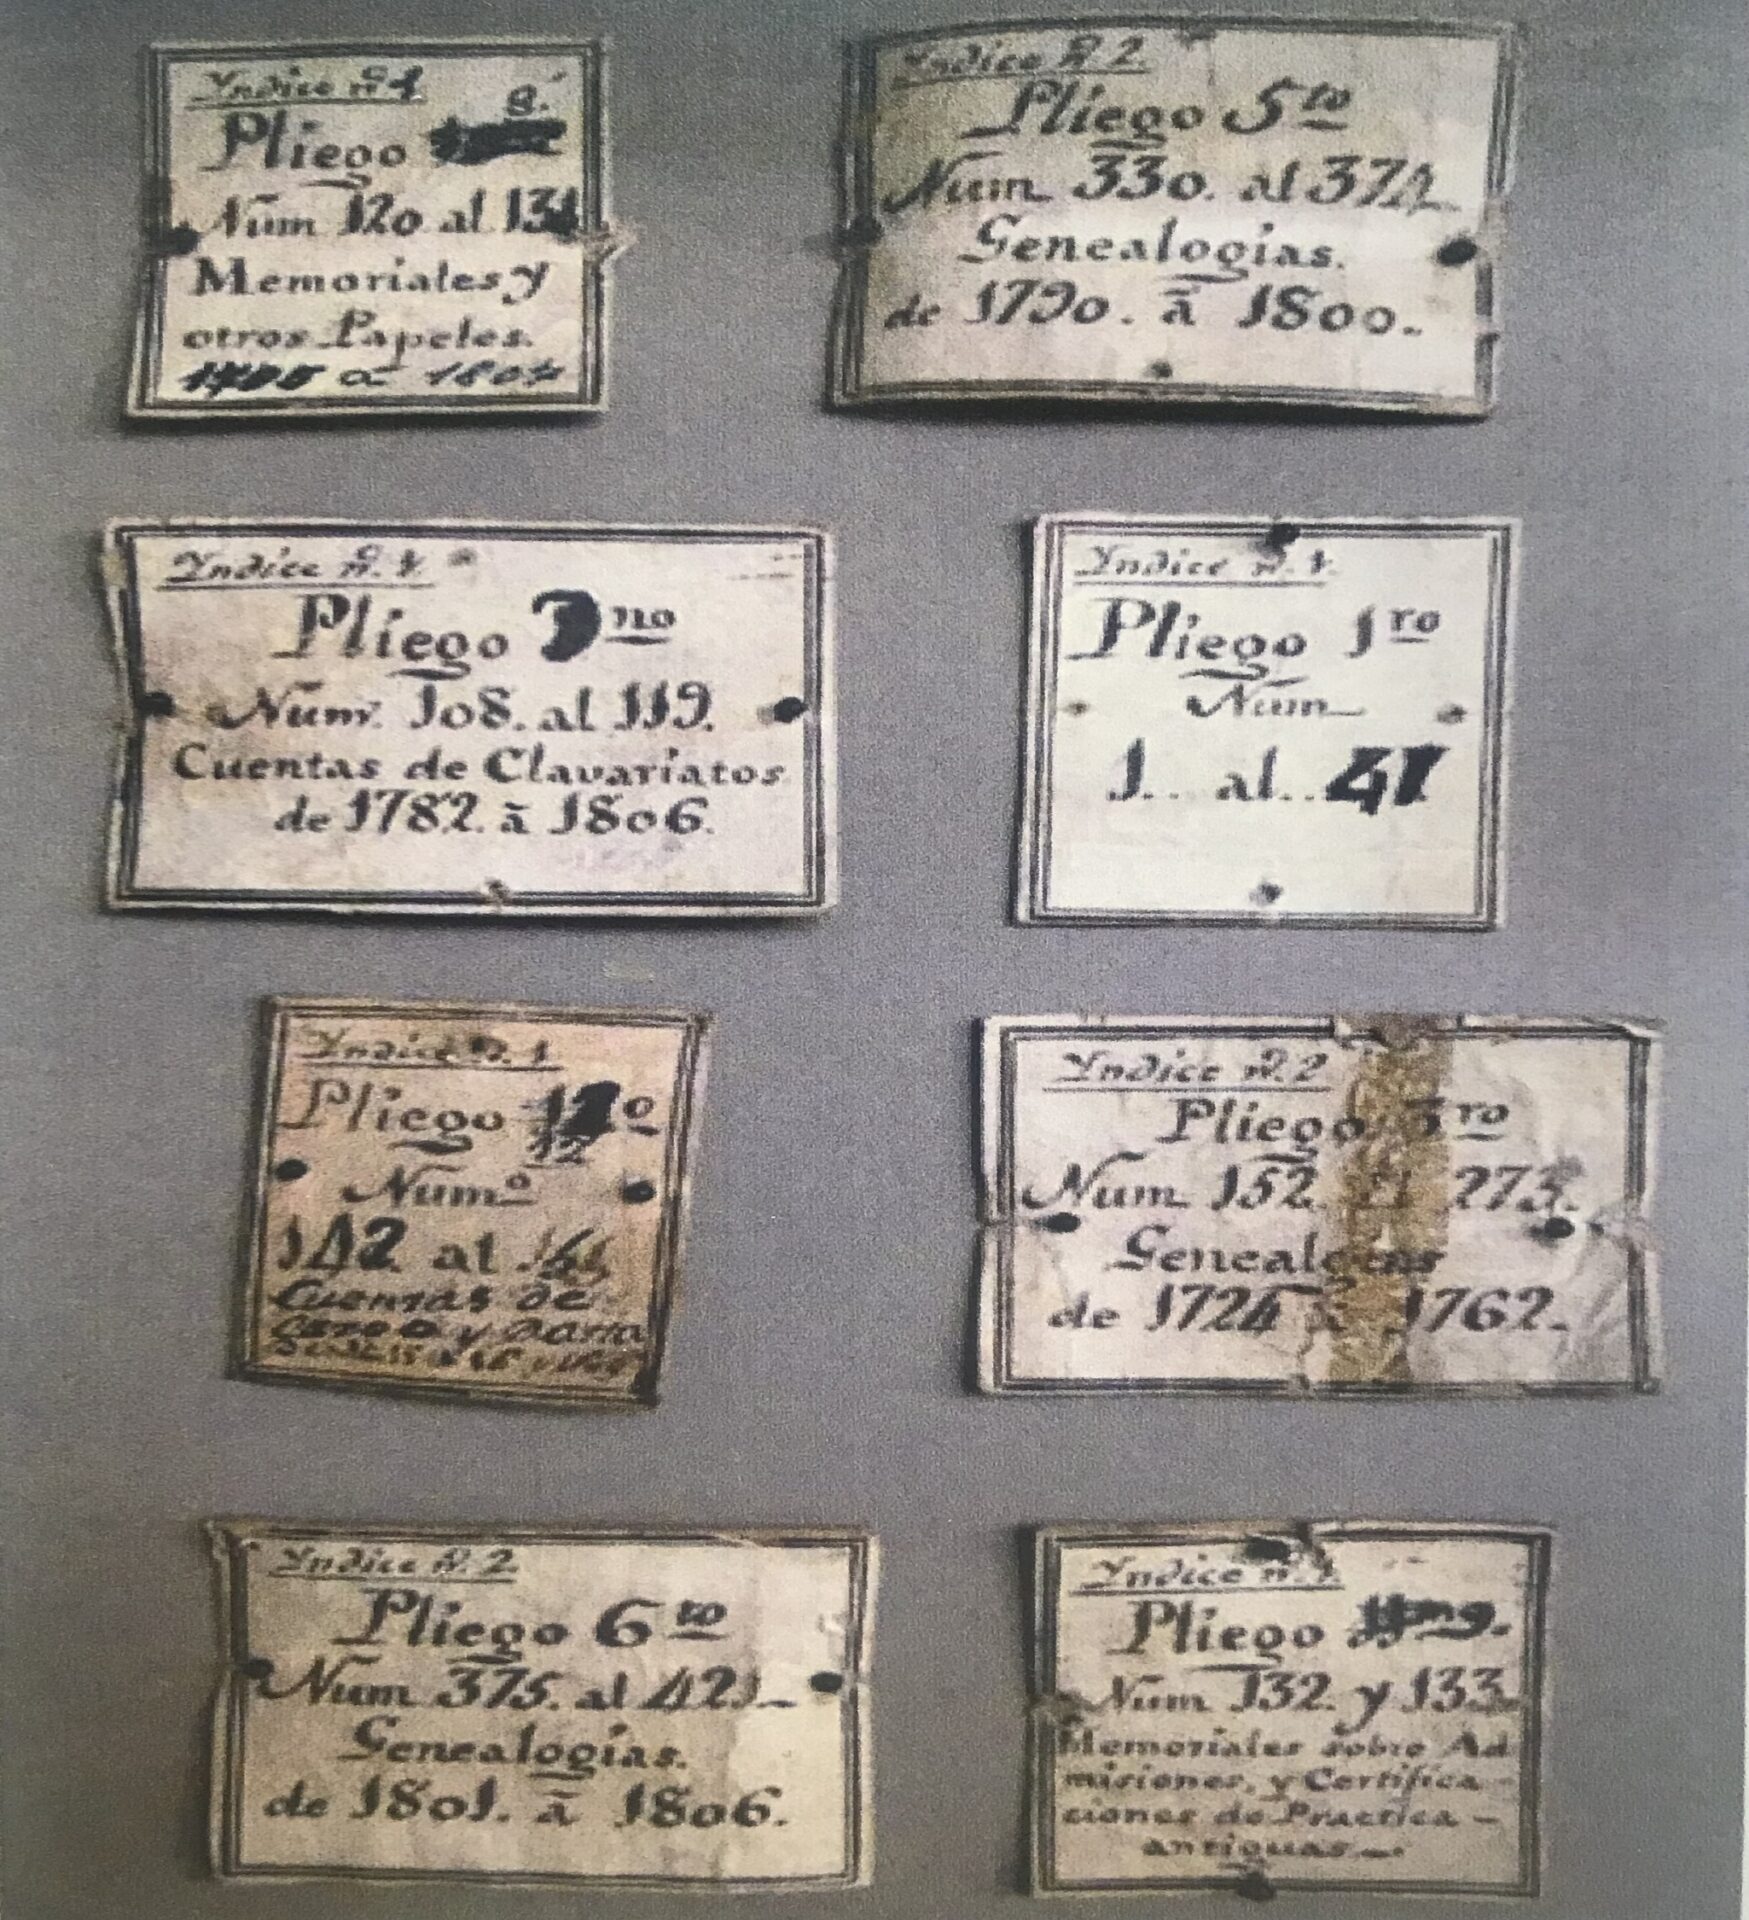 Yndice nº 1
8.
Pliego
Núm 120 al 131
Memoriales y
otros Papeles.
a 1807
Yndice nº 2.
Pliego 5to
Núm 330. al 374
Genealogias.
de 1790. á 1800.
Yndice nº. 1.
Pliego 7no
Núm. 108. al 119.
Cuentas de Clavariatos
de 1782. á 1806.
Yndice nº. 1.
Pliego 1ro
Núm
1.. al.. 47
Yndice nº. 1
Pliego o
12
Numº
142 al
Cuentas de
y Data
Yndice nº. 2
Pliego 3ro
Núm 152. al 273.
Genealogias
de 1724 á 1762.
Yndice nº. 2.
Pliego 6to
Núm 375. al 421.
Genealogias.
de 1801. á 1806.
Yndice nº. 1.
Pliego 9.
Núm 132. y 133
Memoriales sobre Ad
misiones, y Certifica-
ciones de Practica-
antiguas.